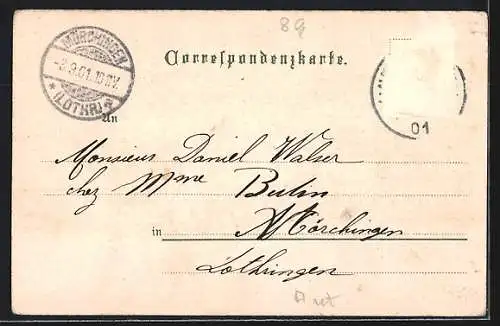 89
MÖRCHINGEN
-3.9.01.10-11V.
* (LOTHR) *
Correspondenzkarte.
01
An
Monsieur Daniel Walser
chez Mme Butin
in Mörchingen
Lothringen